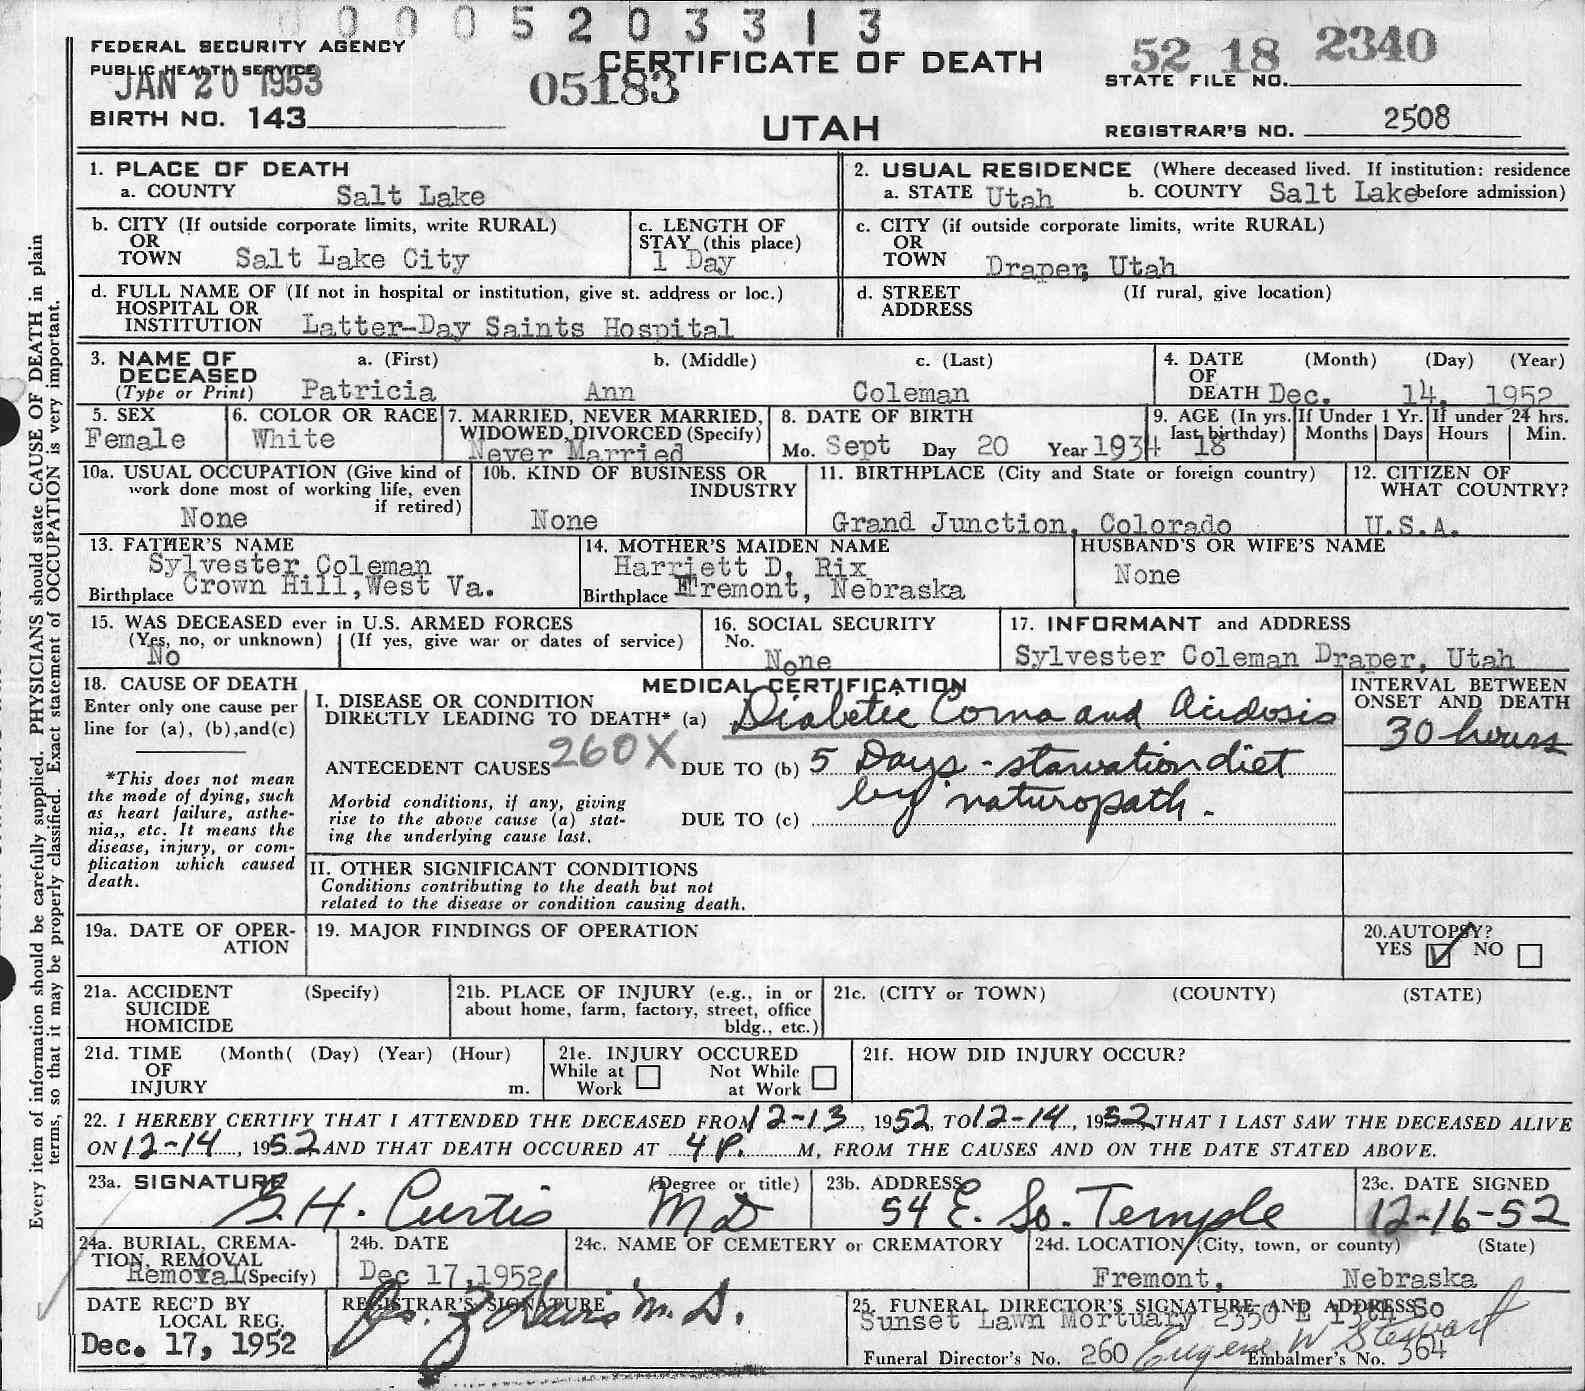 0005203313
FEDERAL SECURITY AGENCY
PUBLIC HEALTH SERVICE
JAN 20 1953
BIRTH NO. 143
CERTIFICATE OF DEATH
05183
UTAH
52 18 2340
STATE FILE NO.
REGISTRAR'S NO. 2508
Every item of information should be carefully supplied. PHYSICIANS should state CAUSE OF DEATH in plain
terms, so that it may be properly classified. Exact statement of OCCUPATION is very important.
1. PLACE OF DEATH
a. COUNTY Salt Lake
2. USUAL RESIDENCE (Where deceased lived. If institution: residence
a. STATE Utah b. COUNTY Salt Lake before admission)
b. CITY (If outside corporate limits, write RURAL)
OR
TOWN Salt Lake City
c. LENGTH OF
STAY (this place)
1 Day
c. CITY (if outside corporate limits, write RURAL)
OR
TOWN Draper, Utah
d. FULL NAME OF (If not in hospital or institution, give st. address or loc.)
HOSPITAL OR
INSTITUTION Latter-Day Saints Hospital
d. STREET (If rural, give location)
ADDRESS
3. NAME OF a. (First) b. (Middle) c. (Last)
DECEASED
(Type or Print) Patricia Ann Coleman
4. DATE (Month) (Day) (Year)
OF
DEATH Dec. 14, 1952
5. SEX
Female
6. COLOR OR RACE
White
7. MARRIED, NEVER MARRIED,
WIDOWED, DIVORCED (Specify)
Never Married
8. DATE OF BIRTH
Mo. Sept Day 20 Year 1934
9. AGE (In yrs.
last birthday)
18
If Under 1 Yr.
Months Days
If under 24 hrs.
Hours Min.
10a. USUAL OCCUPATION (Give kind of
work done most of working life, even
if retired)
None
10b. KIND OF BUSINESS OR
INDUSTRY
None
11. BIRTHPLACE (City and State or foreign country)
Grand Junction, Colorado
12. CITIZEN OF
WHAT COUNTRY?
U.S.A.
13. FATHER'S NAME
Sylvester Coleman
Birthplace Crown Hill, West Va.
14. MOTHER'S MAIDEN NAME
Harriett D. Rix
Birthplace Fremont, Nebraska
HUSBAND'S OR WIFE'S NAME
None
15. WAS DECEASED ever in U.S. ARMED FORCES
(Yes, no, or unknown) (If yes, give war or dates of service)
No
16. SOCIAL SECURITY
No.
None
17. INFORMANT and ADDRESS
Sylvester Coleman Draper, Utah
18. CAUSE OF DEATH
Enter only one cause per
line for (a), (b), and (c)
*This does not mean
the mode of dying, such
as heart failure, asthe-
nia,, etc. It means the
disease, injury, or com-
plication which caused
death.
MEDICAL CERTIFICATION
I. DISEASE OR CONDITION
DIRECTLY LEADING TO DEATH* (a) Diabetic Coma and Acidosis
260X
ANTECEDENT CAUSES DUE TO (b) 5 Days - starvation diet
by naturopath.
Morbid conditions, if any, giving
rise to the above cause (a) stat-
ing the underlying cause last.
DUE TO (c)
INTERVAL BETWEEN
ONSET AND DEATH
30 hours
II. OTHER SIGNIFICANT CONDITIONS
Conditions contributing to the death but not
related to the disease or condition causing death.
19a. DATE OF OPER-
ATION
19. MAJOR FINDINGS OF OPERATION
20. AUTOPSY?
YES NO
21a. ACCIDENT (Specify)
SUICIDE
HOMICIDE
21b. PLACE OF INJURY (e.g., in or
about home, farm, factory, street, office
bldg., etc.)
21c. (CITY or TOWN) (COUNTY) (STATE)
21d. TIME (Month( (Day) (Year) (Hour)
OF
INJURY m.
21e. INJURY OCCURED
While at Not While
Work at Work
21f. HOW DID INJURY OCCUR?
22. I HEREBY CERTIFY THAT I ATTENDED THE DECEASED FROM 12-13, 1952, TO 12-14, 1952, THAT I LAST SAW THE DECEASED ALIVE
ON 12-14, 1952 AND THAT DEATH OCCURED AT 4 P. M, FROM THE CAUSES AND ON THE DATE STATED ABOVE.
23a. SIGNATURE (Degree or title)
G. H. Curtis MD
23b. ADDRESS
54 E. So. Temple
23c. DATE SIGNED
12-16-52
24a. BURIAL, CREMA-
TION, REMOVAL
Removal (Specify)
24b. DATE
Dec 17, 1952
24c. NAME OF CEMETERY or CREMATORY
24d. LOCATION (City, town, or county) (State)
Fremont, Nebraska
DATE REC'D BY
LOCAL REG.
Dec. 17, 1952
REGISTRAR'S SIGNATURE
M.D.
25. FUNERAL DIRECTOR'S SIGNATURE AND ADDRESS
Sunset Lawn Mortuary 2350 E 13th So
Eugene W Stewart
Funeral Director's No. 260 Embalmer's No. 364